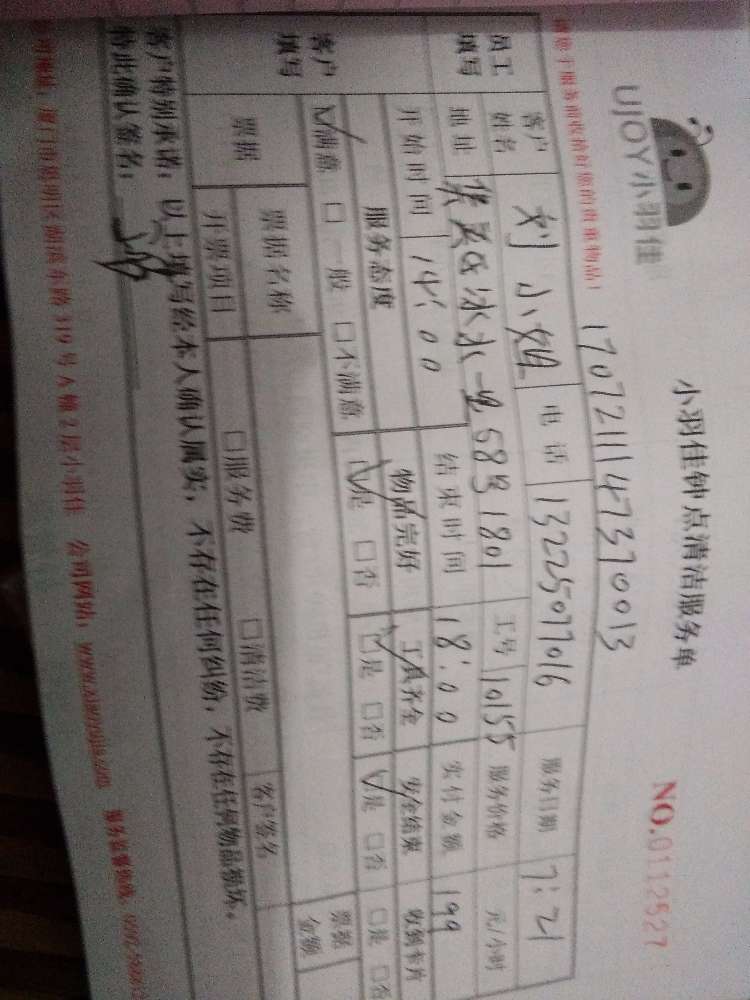 UJOY小羽佳
小羽佳钟点清洁服务单
NO.0112527
1707211147370013
员工填写
客户姓名 刘小姐 电话 13225077016 服务日期 7:21
地址 集美区冰水 68号1801 工号 10155 服务价格 元/小时
开始时间 14:00 结束时间 18:00 实付金额 199
客户填写
服务态度 物品完好 工具齐全 安全结束 收到卡片
☑满意 □一般 □不满意 ☑是 □否 ☑是 □否 ☑是 □否 □是 □否
票据 票据名称 票据金额
开票项目 □服务费 □清洁费 客户签名
客户特别承诺：以上填写经本人确认属实，不存在任何纠纷，不存在任何物品损坏。
特此确认签名：
厦门市思明区湖滨东路319号A幢2层小羽佳 公司网站：